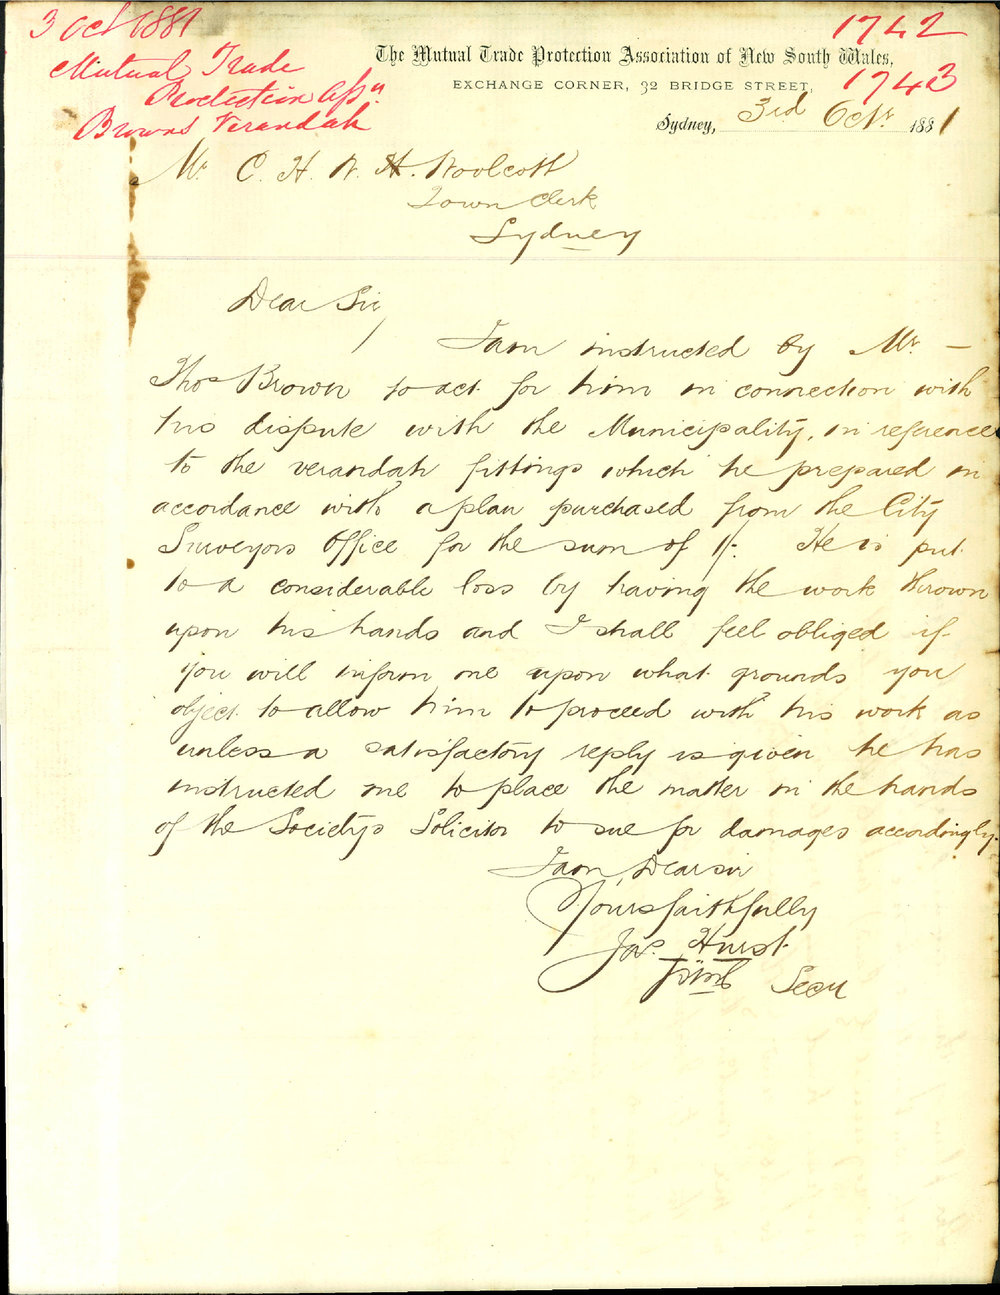 3 Oct 1881
Mutual Trade
Protection Assn
Browns Verandah
1742
1743
The Mutual Trade Protection Association of New South Wales,
EXCHANGE CORNER, 32 BRIDGE STREET,
Sydney, 3rd Octr 1881
Mr C. H. W. H. Woolcott
Town Clerk
Sydney
Dear Sir,
I am instructed by Mr –
Thos Brown to act for him in connection with
his dispute with the Municipality, in reference
to the verandah fittings which he prepared in
accordance with a plan purchased from the City
Surveyors Office for the sum of 1/-. He is put
to a considerable loss by having the work thrown
upon his hands and I shall feel obliged if
you will inform me upon what grounds you
object to allow him to proceed with his work as
unless a satisfactory reply is given he has
instructed me to place the matter in the hands
of the Societys Solicitor to sue for damages accordingly.
I am, Dear sir
Yours faithfully
Jas. Hurst
Secy